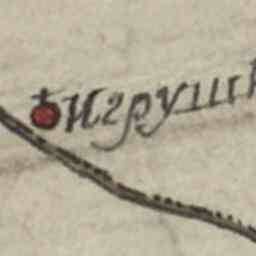 Игруши